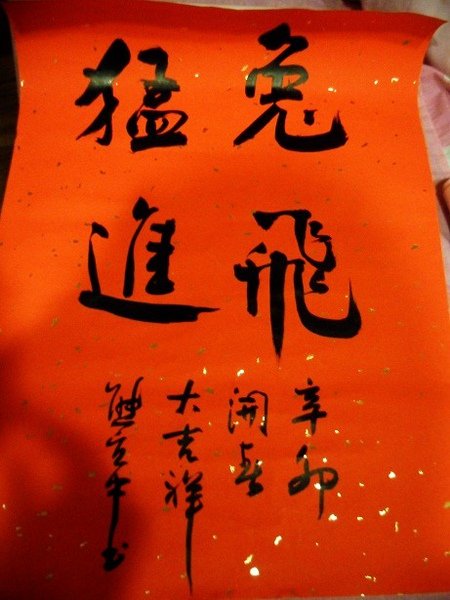 兔飛
猛進
辛卯
開春
大吉祥
熊宜中書